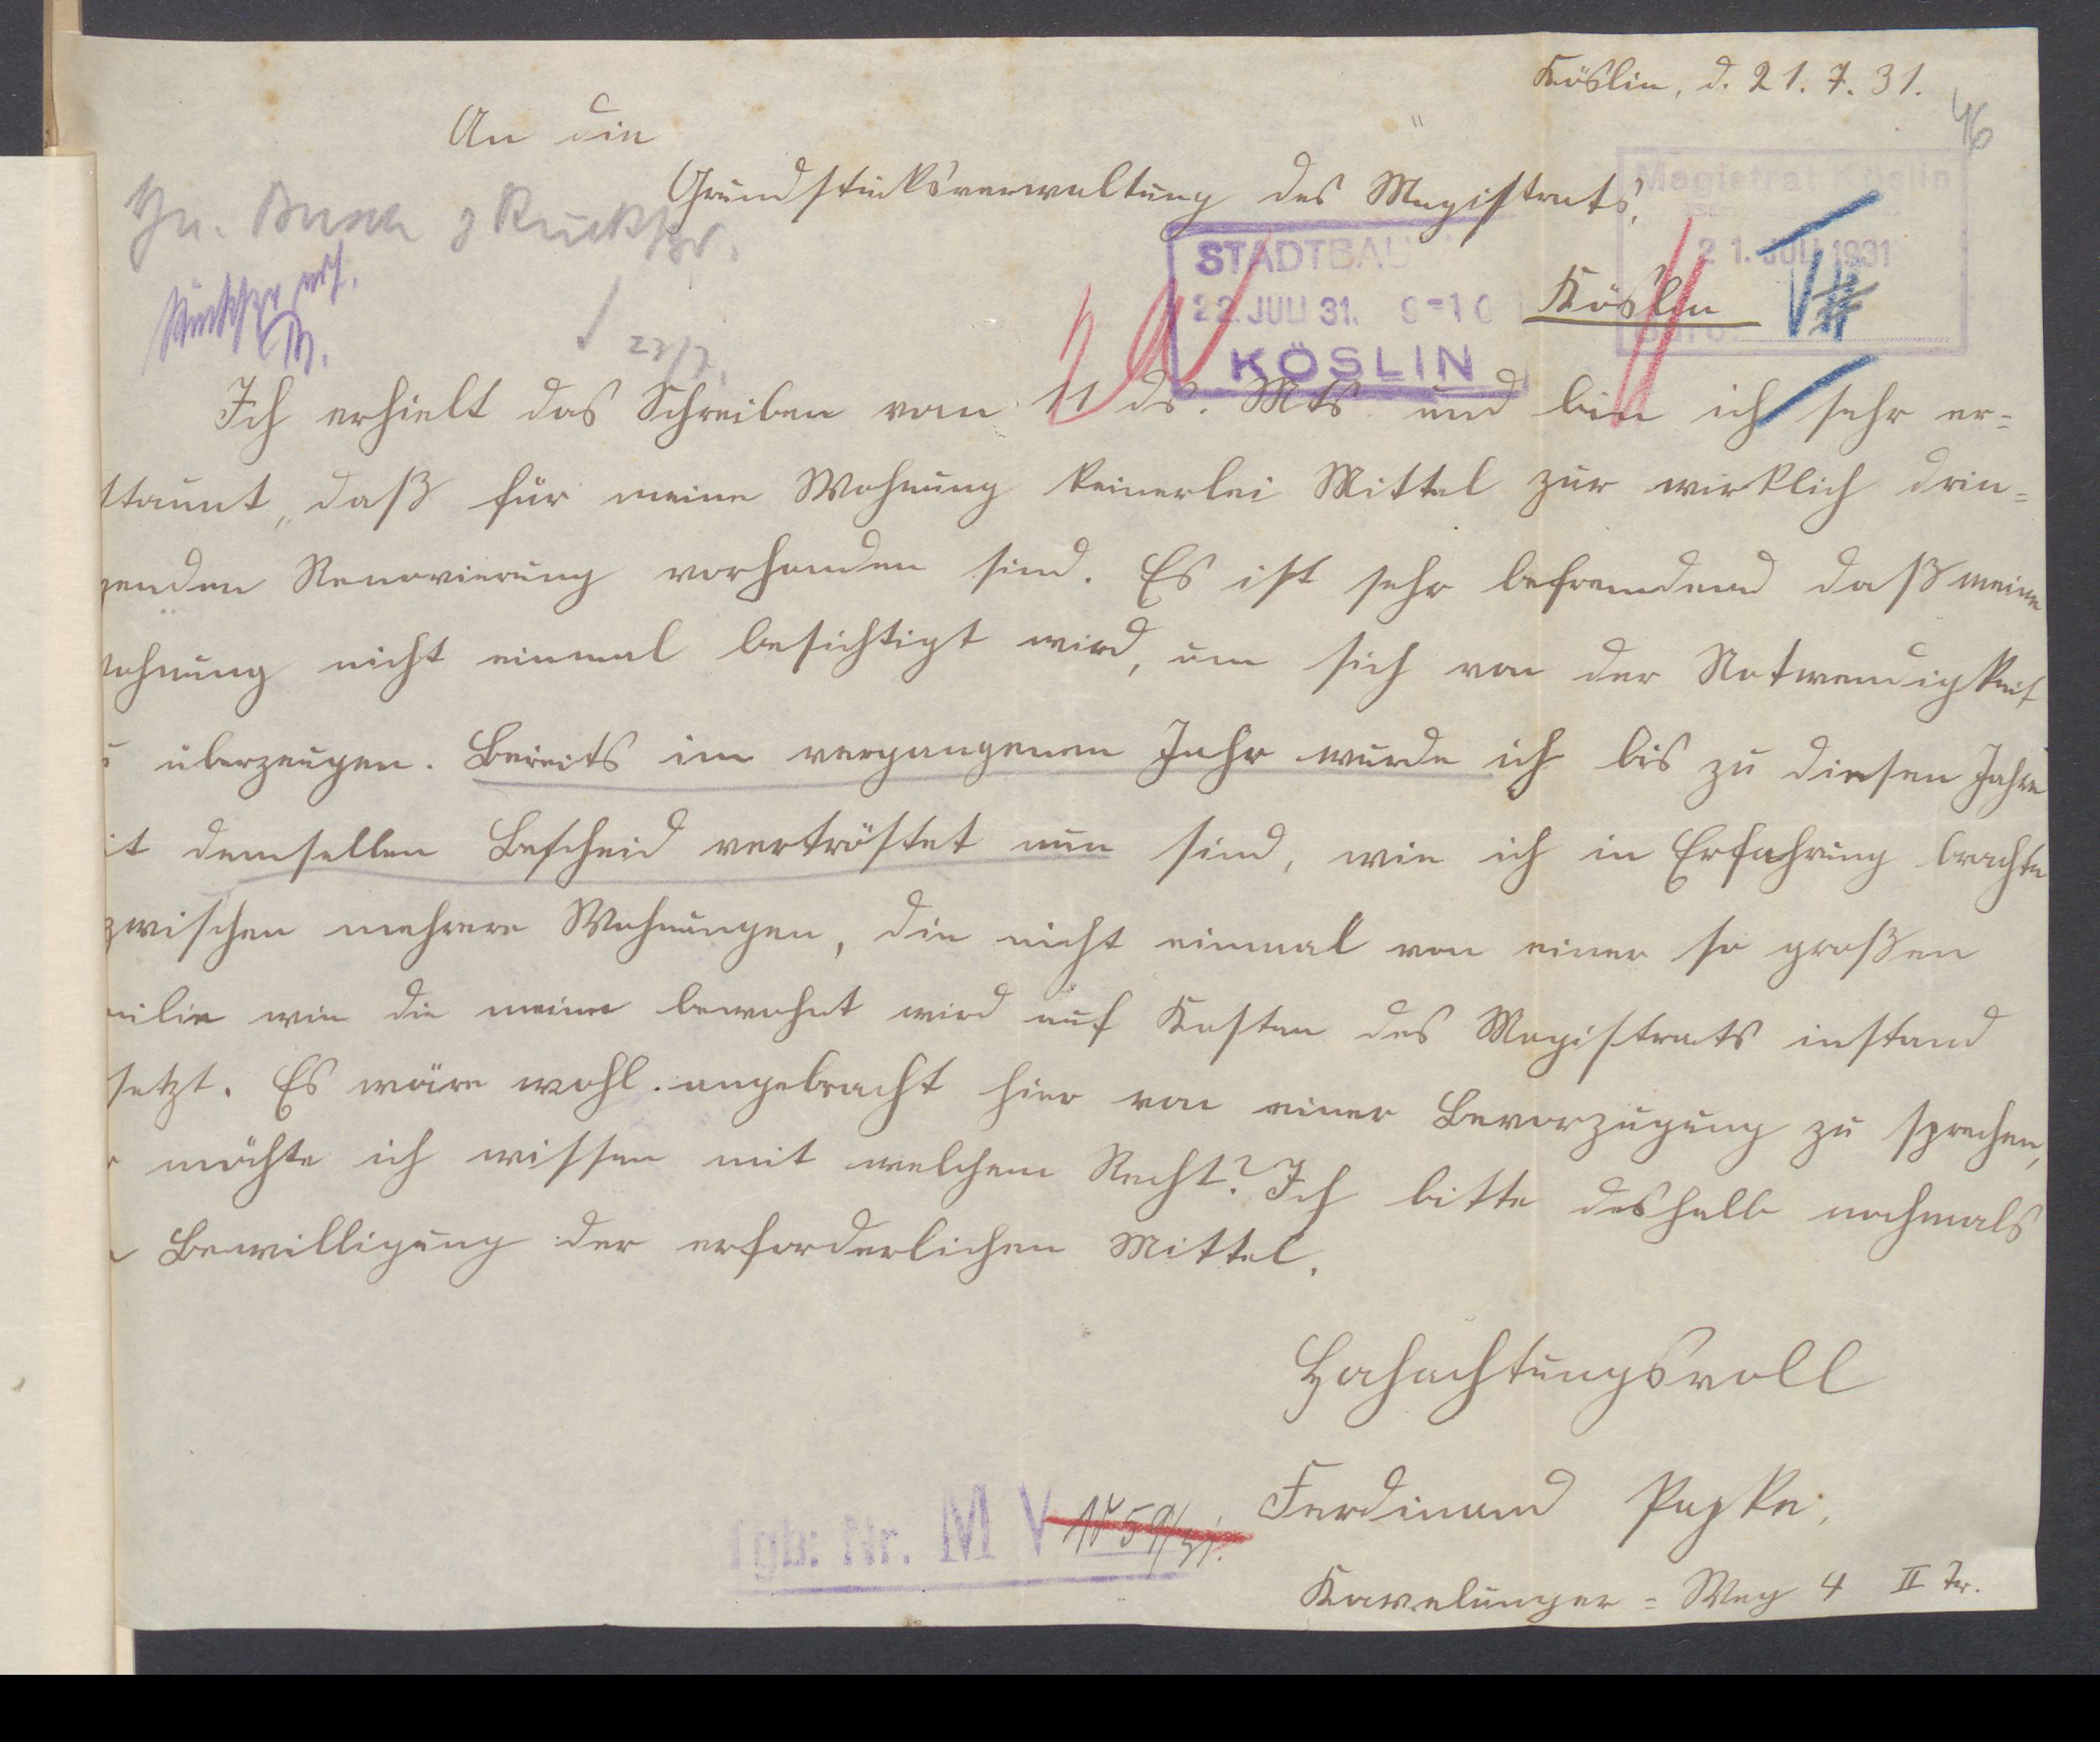 Köslin, d. 21. 7. 31.
46
An die
Grundstücksverwaltung des Magistrats,
Magistrat Köslin
21. JULI 1931
Köslin
STADTBAU
22. JULI 31. 9-10
KÖSLIN
Hn. Busch z Rückspr.
Rückspr. erf.
23/7.
Ich erhielt das Schreiben von 11 ds. Mts und bin ich sehr er=
staunt, daß für meine Wohnung keinerlei Mittel zur wirklich drin=
genden Renovierung vorhanden sind. Es ist sehr befremdend daß meine
ohnung nicht einmal besichtigt wird, um sich von der Notwendigkeit
überzeugen. Bereits im vergangenen Jahr wurde ich bis zu diesen Jahre
it demselben Bescheid vertröstet nun sind, wie ich in Erfahrung brachte
zwischen mehrere Wohnungen, die nicht einmal von einer so großen
milie wie die meine bewohnt wird auf Kosten des Magistrats instand
setzt. Es wäre wohl angebracht hier von einer Bevorzugung zu sprechen,
möchte ich wissen mit welchem Recht? Ich bitte deshalb nochmals
Bewilligung der erforderlichen Mittel.
Hochachtungsvoll
Ferdinand Papke,
Kavelunger = Weg 4 II Tr.
Tgb: Nr. M V